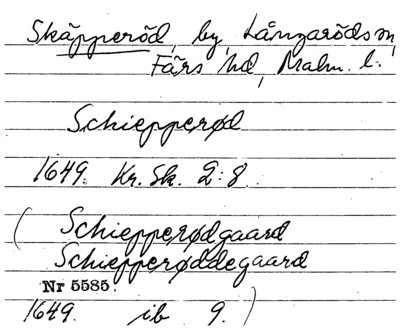 Skäpperöd, by, Långaröds sn,
Färs hd, Malm. l.
Schiepperød
1649. Kr. Sk. 2:8.
( Schiepperødgaard
Schiepperøddegaard
Nr 5585.
1649. ib 9. )